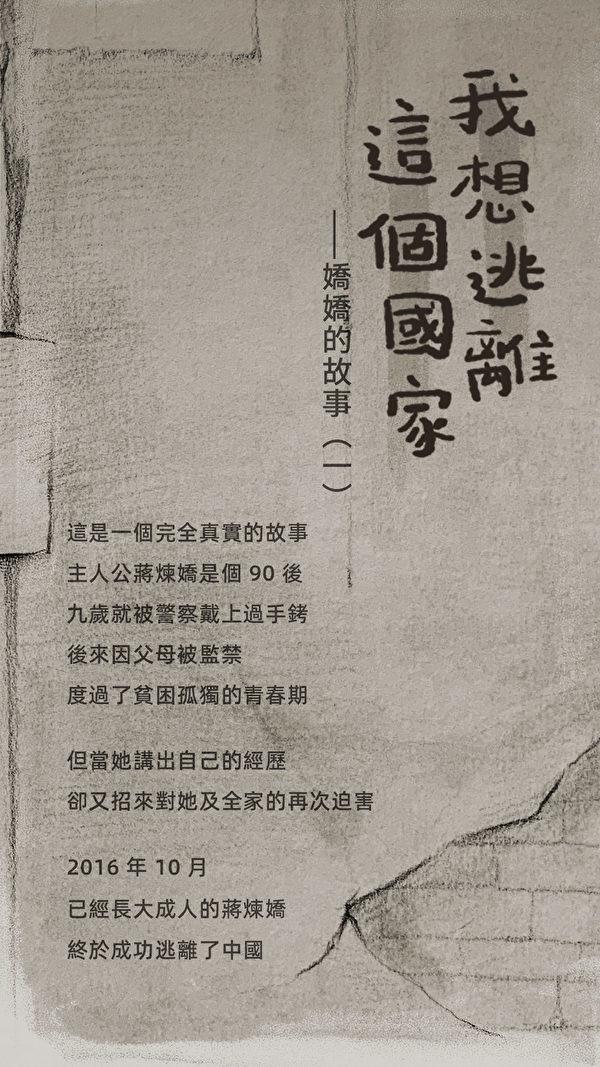 我想逃離
這個國家
——嬌嬌的故事（一）
這是一個完全真實的故事
主人公蔣煉嬌是個 90 後
九歲就被警察戴上過手銬
後來因父母被監禁
度過了貧困孤獨的青春期
但當她講出自己的經歷
卻又招來對她及全家的再次迫害
2016 年 10 月
已經長大成人的蔣煉嬌
終於成功逃離了中國